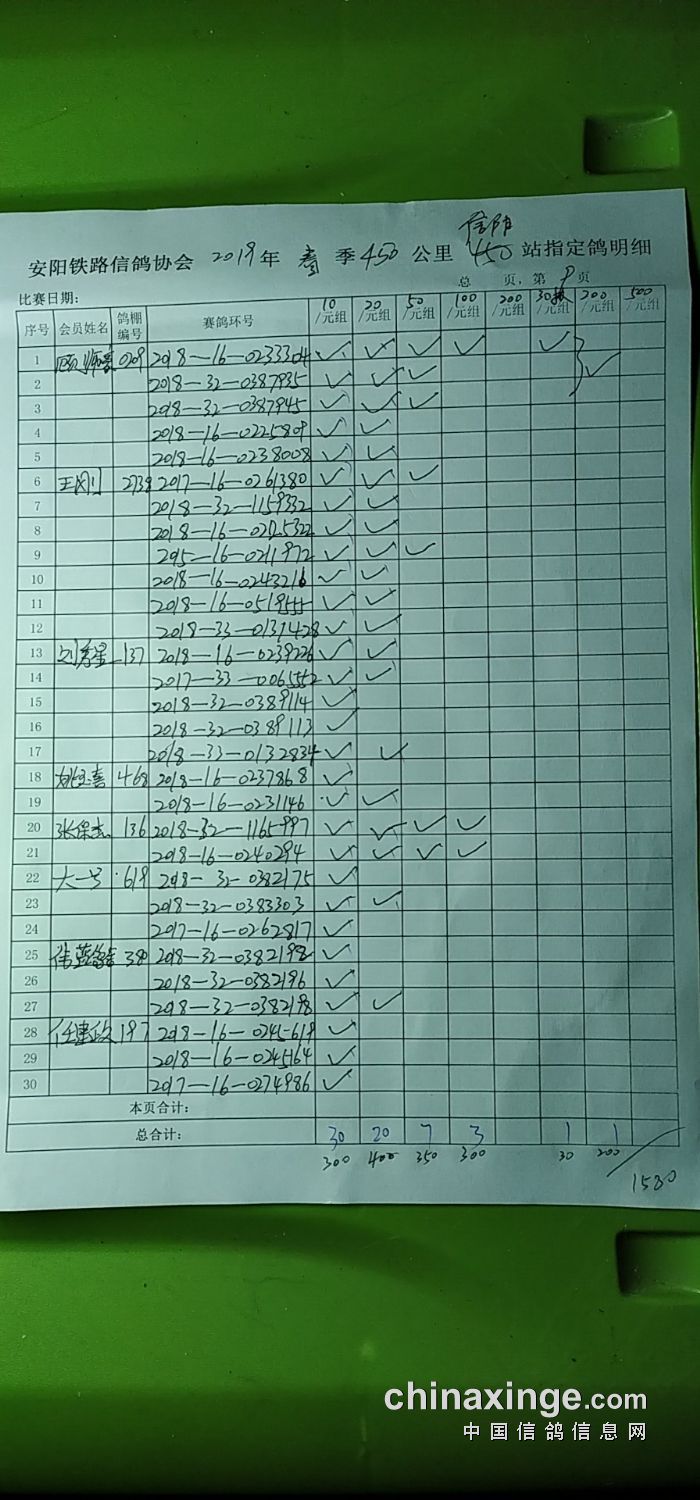 信阳
安阳铁路信鸽协会 2019年 春 季 450 公里 450 站指定鸽明细
比赛日期: 总 页,第 页
序号 会员姓名 鸽棚编号 赛鸽环号 10/元组 20/元组 50/元组 100/元组 200/元组 30/元组 200/元组 500/元组
1 0209 2018-16-0233304 ✓ ✓ ✓ ✓ ✓
2 2018-32-0387935 ✓ ✓ ✓ ✓
3 2018-32-0387945 ✓ ✓ ✓
4 2018-16-0225809 ✓ ✓
5 2018-16-0238008 ✓ ✓
6 王刚 2738 2017-16-0261380 ✓ ✓ ✓
7 2018-32-1159332 ✓ ✓
8 2018-16-0225322 ✓ ✓
9 2015-16-0211972 ✓ ✓ ✓
10 2018-16-0243216 ✓ ✓
11 2018-16-0519555 ✓ ✓
12 2018-33-0131428 ✓ ✓
13 137 2018-16-0239226 ✓ ✓
14 2017-33-0065552 ✓ ✓
15 2018-32-0389114 ✓
16 2018-32-0389113 ✓
17 2018-33-0132834 ✓ ✓
18 468 2018-16-0237868 ✓
19 2018-16-0231146 ✓ ✓
20 136 2018-32-1165997 ✓ ✓ ✓ ✓
21 2018-16-0240294 ✓ ✓ ✓ ✓
22 大一号 619 2018-32-0382175 ✓
23 2018-32-0383303 ✓ ✓
24 2017-16-0262817 ✓
25 380 2018-32-0382192 ✓
26 2018-32-0382196 ✓
27 2018-32-0382198 ✓ ✓
28 任建政 197 2018-16-0245619 ✓
29 2018-16-024564 ✓
30 2017-16-0274986 ✓
本页合计:
总合计: 30 20 7 3 1 1
300 400 350 300 30 200
1580
chinaxinge.com
中国信鸽信息网